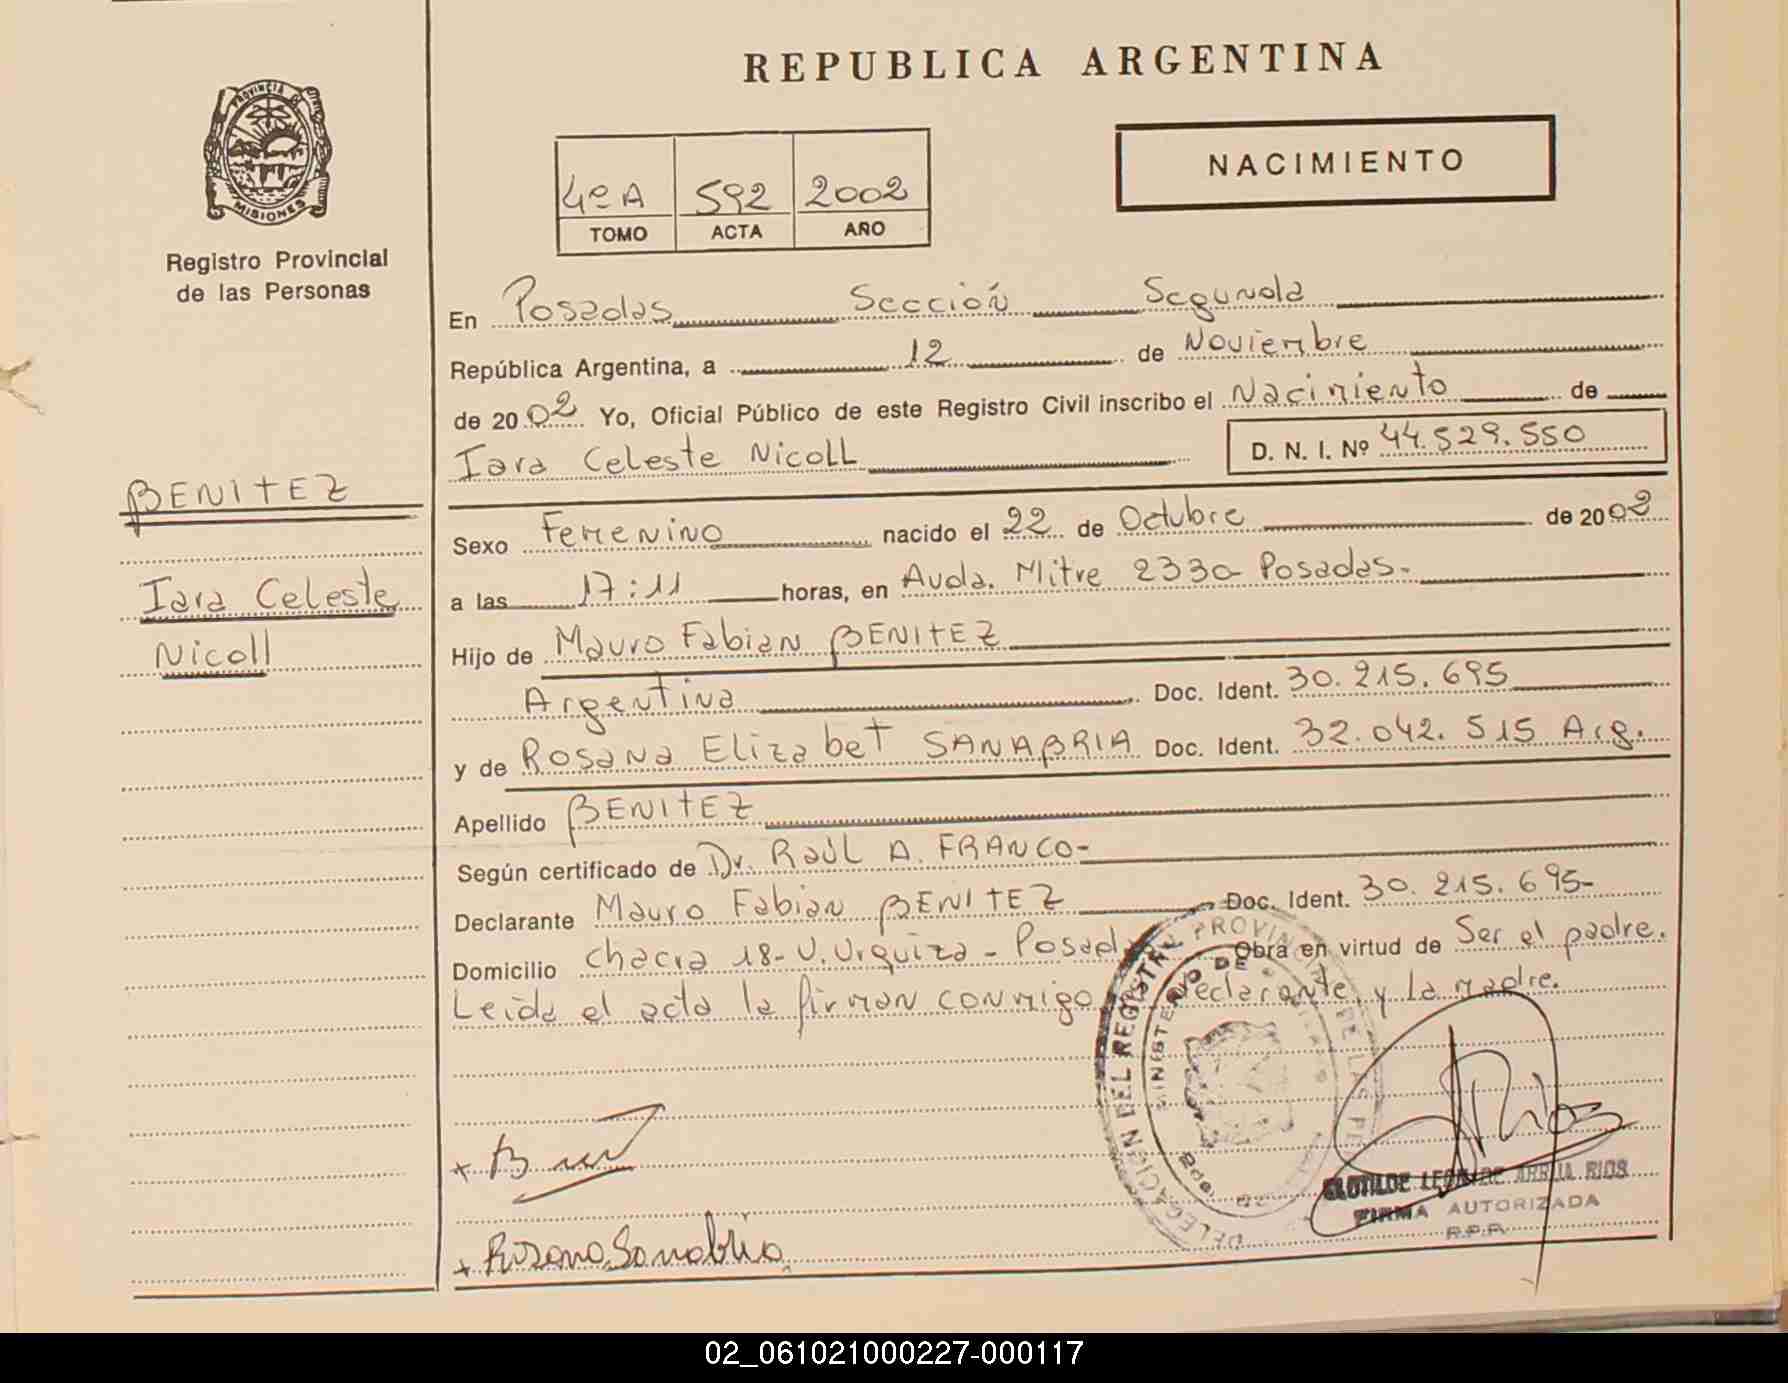 REPUBLICA ARGENTINA
PROVINCIA DE
MISIONES
Registro Provincial
de las Personas
NACIMIENTO
4º A 592 2002
TOMO ACTA AÑO
En Posadas Sección Segunda
República Argentina, a 12 de Noviembre
de 2002 Yo, Oficial Público de este Registro Civil inscribo el Nacimiento de
Iara Celeste Nicoll D. N. I. Nº 44.529.550
BENITEZ
Iara Celeste
Nicoll
Sexo Femenino nacido el 22 de Octubre de 2002
a las 17:11 horas, en Avda. Mitre 2330 Posadas.
Hijo de Mauro Fabian BENITEZ
Argentina Doc. Ident. 30.215.695
y de Rosana Elizabet SANABRIA Doc. Ident. 32.042.515 Arg.
Apellido BENITEZ
Según certificado de Dr. RAÚL A. FRANCO-
Declarante Mauro Fabian BENITEZ Doc. Ident. 30.215.695-
Domicilio chacra 18-U.Urquiza - Posadas Obra en virtud de Ser el padre.
Leída el acta la firman conmigo declarante, y la madre.
DELEGACIÓN DEL REGISTRO PROVINCIAL DE LAS PE
MINISTERIO DE
Rosana Sanabria
Rios
CLOTILDE LEON DE ARRUA RIOS
FIRMA AUTORIZADA
R.P.P.
02_061021000227-000117